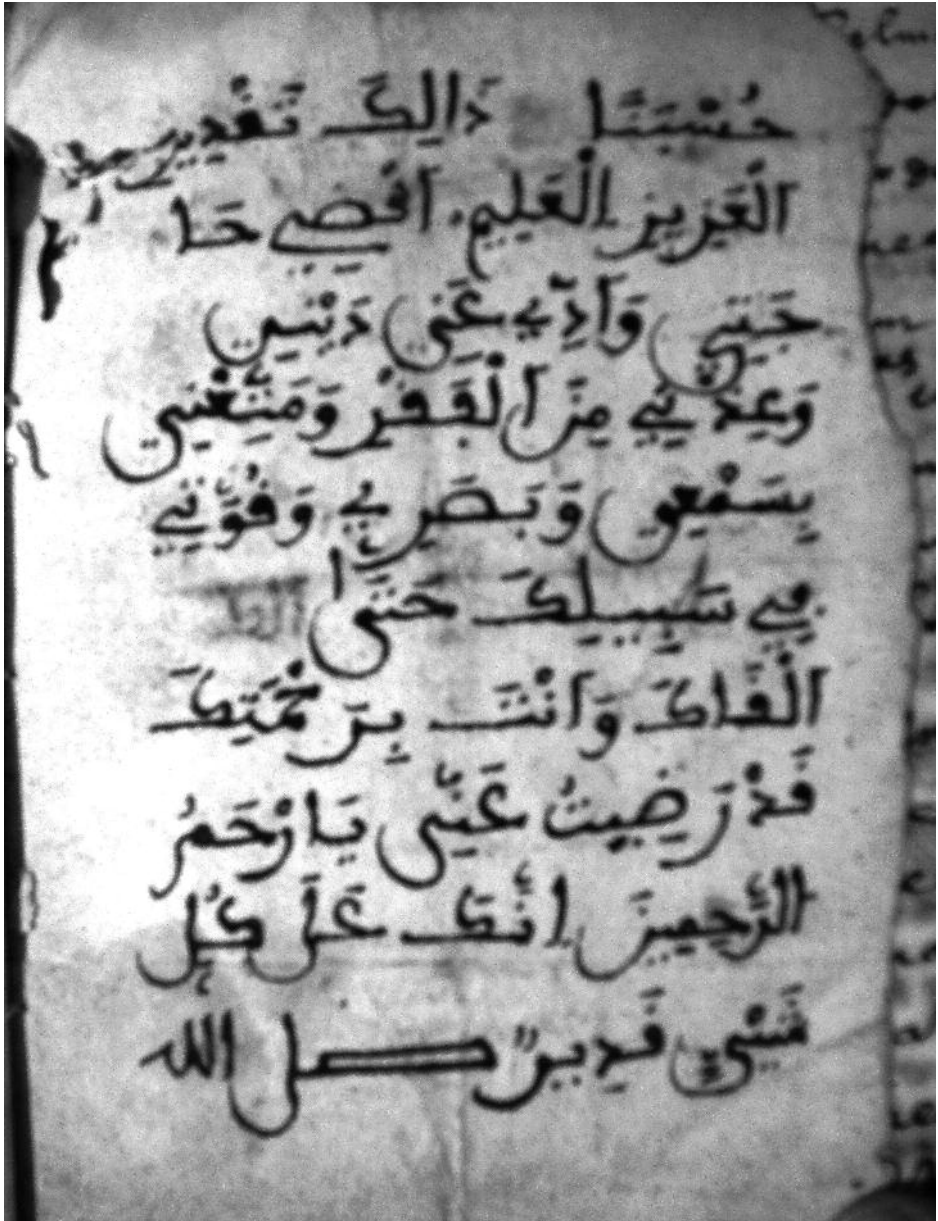 حُسْبَنًا ذَالِكَ تَقْدِيرُ
الْعَزِيزِ الْعَلِيمِ اَقْضِي حَا
جَتِي وَاَدِّي عَنِّي دَيْنِي
وَعِذْنِي مِنَ اَلْفَقْرِ وَمَتِّعْنِي
بِسَمْعِي وَبَصَرِي وَقُوَّتِي
فِي سَبِيلِكَ حَتَّى
اَلْقَاكَ وَاَنْتَ بِرَحْمَتِكَ
قَدْ رَضِيتُ عَنِّي يَا اَرْحَمُ
الرَّحِمِينَ اِنَّكَ عَلَى كُلِّ
شَيْءٍ قَدِيرٌ صل الله